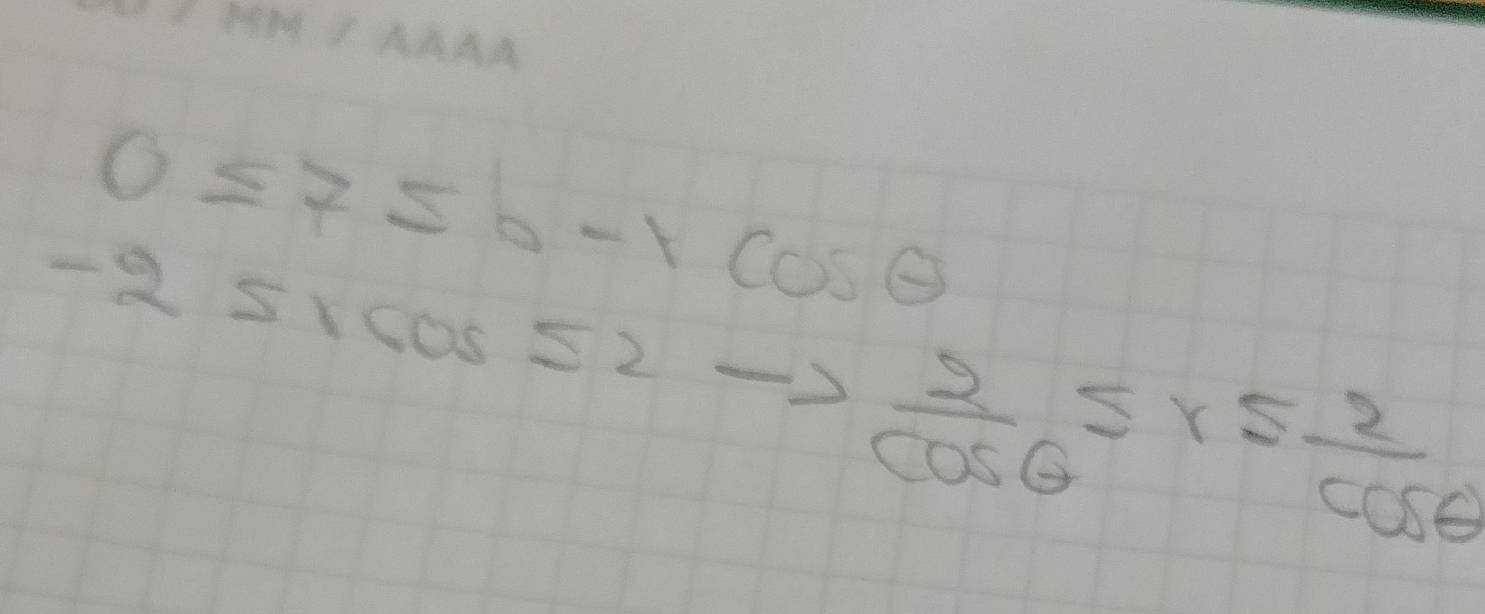 / MM / AAAA
0 ≤ 7 ≤ b - r cos θ
-2 ≤ r cos ≤ 2 -> 2/cos θ ≤ r ≤ 2/cos θ